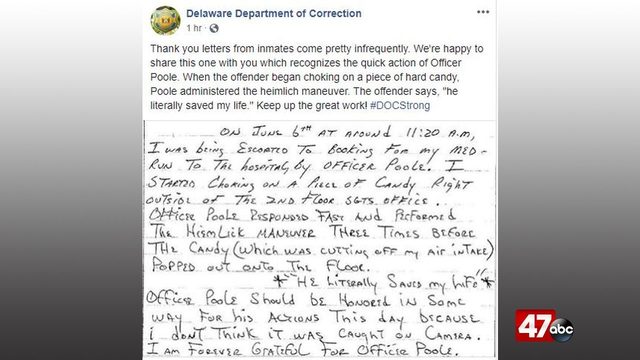 Delaware Department of Correction
1 hr ·
Thank you letters from inmates come pretty infrequently. We're happy to
share this one with you which recognizes the quick action of Officer
Poole. When the offender began choking on a piece of hard candy,
Poole administered the heimlich maneuver. The offender says, "he
literally saved my life." Keep up the great work! #DOCStrong
ON JUNE 6TH AT AROUND 11:20 A.M,
I WAS BEING ESCORTED TO BOOKING FOR MY MED-
RUN TO THE HOSPITAL, BY OFFICER POOLE. I
STARTED CHOKING ON A PIECE OF CANDY RIGHT
OUTSIDE OF THE 2ND FLOOR SGTS OFFICE.
OFFICER POOLE RESPONDED FAST AND PERFORMED
THE HIEMLICK MANEUVER THREE TIMES BEFORE
THE CANDY (WHICH WAS CUTTING OFF MY AIR INTAKE)
POPPED OUT ONTO THE FLOOR.
* "HE LITERALLY SAVED MY LIFE" *
OFFICER POOLE SHOULD BE HONORED IN SOME
WAY FOR HIS ACTIONS THIS DAY BECAUSE
i DON'T THINK IT WAS CAUGHT ON CAMERA.
I AM FOREVER GRATEFUL FOR OFFICER POOLE.
47abc